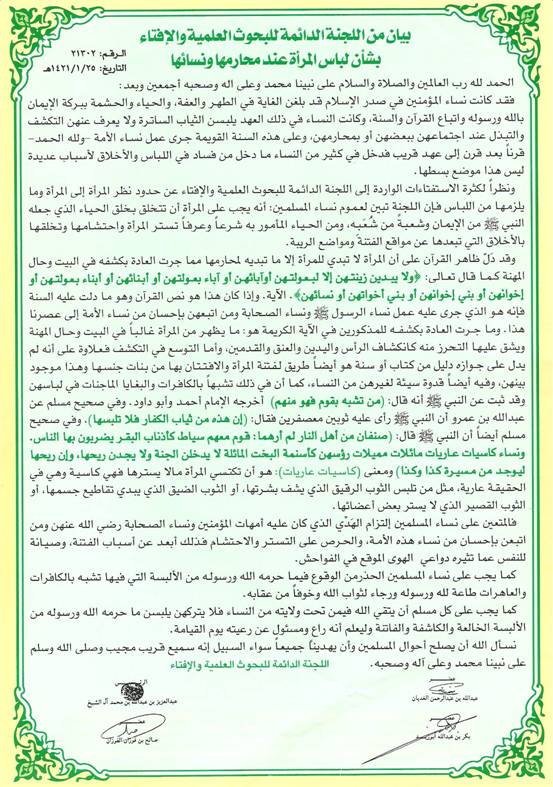 بيان من اللجنة الدائمة للبحوث العلمية والإفتاء
بشأن لباس المرأة عند محارمها ونسائها
الرقـم: ٢١٣٠٢
التاريخ: ١٤٢١/١/٢٥هـ
الحمد لله رب العالمين والصلاة والسلام على نبينا محمد وعلى اله وصحبه أجمعين وبعد:
فقد كانت نساء المؤمنين في صدر الإسلام قد بلغن الغاية في الطهر والعفة، والحياء والحشمة ببركة الإيمان
بالله ورسوله واتباع القرآن والسنة، وكانت النساء في ذلك العهد يلبسن الثياب الساترة ولا يعرف عنهن التكشف
والتبذل عند اجتماعهن ببعضهن أو بمحارمهن، وعلى هذه السنة القويمة جرى عمل نساء الأمة -ولله الحمد-
قرناً بعد قرن إلى عهد قريب فدخل في كثير من النساء ما دخل من فساد في اللباس والأخلاق لأسباب عديدة
ليس هذا موضع بسطها.
ونظراً لكثرة الاستفتاءات الواردة إلى اللجنة الدائمة للبحوث العلمية والإفتاء عن حدود نظر المرأة إلى المرأة وما
يلزمها من اللباس فإن اللجنة تبين لعموم نساء المسلمين: أنه يجب على المرأة أن تتخلق بخلق الحياء الذي جعله
النبي ﷺ من الإيمان وشعبةً من شُعَبه، ومن الحياء المأمور به شرعاً وعرفاً تستر المرأة واحتشامها وتخلقها
بالأخلاق التي تبعدها عن مواقع الفتنة ومواضع الريبة.
وقد دَلّ ظاهر القرآن على أن المرأة لا تبدي للمرأة إلا ما تبديه لمحارمها مما جرت العادة بكشفه في البيت وحال
المهنة كما قال تعالى: ﴿ولا يبدين زينتهن إلا لبعولتهن أوآبائهن أو آباء بعولتهن أو أبنائهن أو أبناء بعولتهن أو
إخوانهن أو بني إخوانهن أو بني أخواتهن أو نسائهن﴾. الآية. وإذا كان هذا هو نص القرآن وهو ما دلت عليه السنة
فإنه هو الذي جرى عليه عمل نساء الرسول ﷺ ونساء الصحابة ومن اتبعهن بإحسان من نساء الأمة إلى عصرنا
هذا. وما جرت العادة بكشفه للمذكورين في الآية الكريمة هو: ما يظهر من المرأة غالباً في البيت وحال المهنة
ويشق عليها التحرز منه كانكشاف الرأس واليدين والعنق والقدمين، وأما التوسع في التكشف فعلاوة على أنه لم
يدل على جوازه دليل من كتاب أو سنة هو أيضاً طريق لفتنة المرأة والافتتان بها من بنات جنسها وهذا موجود
بينهن، وفيه أيضاً قدوة سيئة لغيرهن من النساء، كما أن في ذلك تشبهاً بالكافرات والبغايا الماجنات في لباسهن
وقد ثبت عن النبي ﷺ أنه قال: (من تشبه بقوم فهو منهم) أخرجه الإمام أحمد وأبو داود. وفي صحيح مسلم عن
عبدالله بن عمرو أن النبي ﷺ رأى عليه ثوبين معصفرين فقال: (إن هذه من ثياب الكفار فلا تلبسها). وفي صحيح
مسلم أيضاً أن النبي ﷺ قال: (صنفان من أهل النار لم أرهما: قوم معهم سياط كأذناب البقر يضربون بها الناس.
ونساء كاسيات عاريات مائلات مميلات رؤسهن كأسنمة البخت المائلة لا يدخلن الجنة ولا يجدن ريحها، وإن ريحها
ليوجد من مسيرة كذا وكذا) ومعنى (كاسيات عاريات): هو أن تكتسي المرأة مالا يسترها فهي كاسية وهي في
الحقيقة عارية، مثل من تلبس الثوب الرقيق الذي يشف بشرتها، أو الثوب الضيق الذي يبدي تقاطيع جسمها، أو
الثوب القصير الذي لا يستر بعض أعضائها.
فالمتعين على نساء المسلمين إلتزام الهَدْي الذي كان عليه أمهات المؤمنين ونساء الصحابة رضي الله عنهن ومن
اتبعهن بإحسان من نساء هذه الأمة، والحرص على التستر والاحتشام فذلك أبعد عن أسباب الفتنة، وصيانة
للنفس عما تثيره دواعي الهوى الموقع في الفواحش.
كما يجب على نساء المسلمين الحذر من الوقوع فيما حرمه الله ورسوله من الألبسة التي فيها تشبه بالكافرات
والعاهرات طاعة لله ورسوله ورجاء لثواب الله وخوفاً من عقابه.
كما يجب على كل مسلم أن يتقي الله فيمن تحت ولايته من النساء فلا يتركهن يلبسن ما حرمه الله ورسوله من
الألبسة الخالعة والكاشفة والفاتنة وليعلم أنه راع ومسئول عن رعيته يوم القيامة.
نسأل الله أن يصلح أحوال المسلمين وأن يهدينا جميعاً سواء السبيل إنه سميع قريب مجيب وصلى الله وسلم
على نبينا محمد وعلى آله وصحبه.
اللجنة الدائمة للبحوث العلمية والإفتاء
عضـو
عبدالله بن عبدالرحمن الغديان
الرئيس
عبدالعزيز بن عبدالله بن محمد آل الشيخ
عضـو
بكر بن عبدالله أبوزيد
عضـو
صالح بن فوزان الفوزان